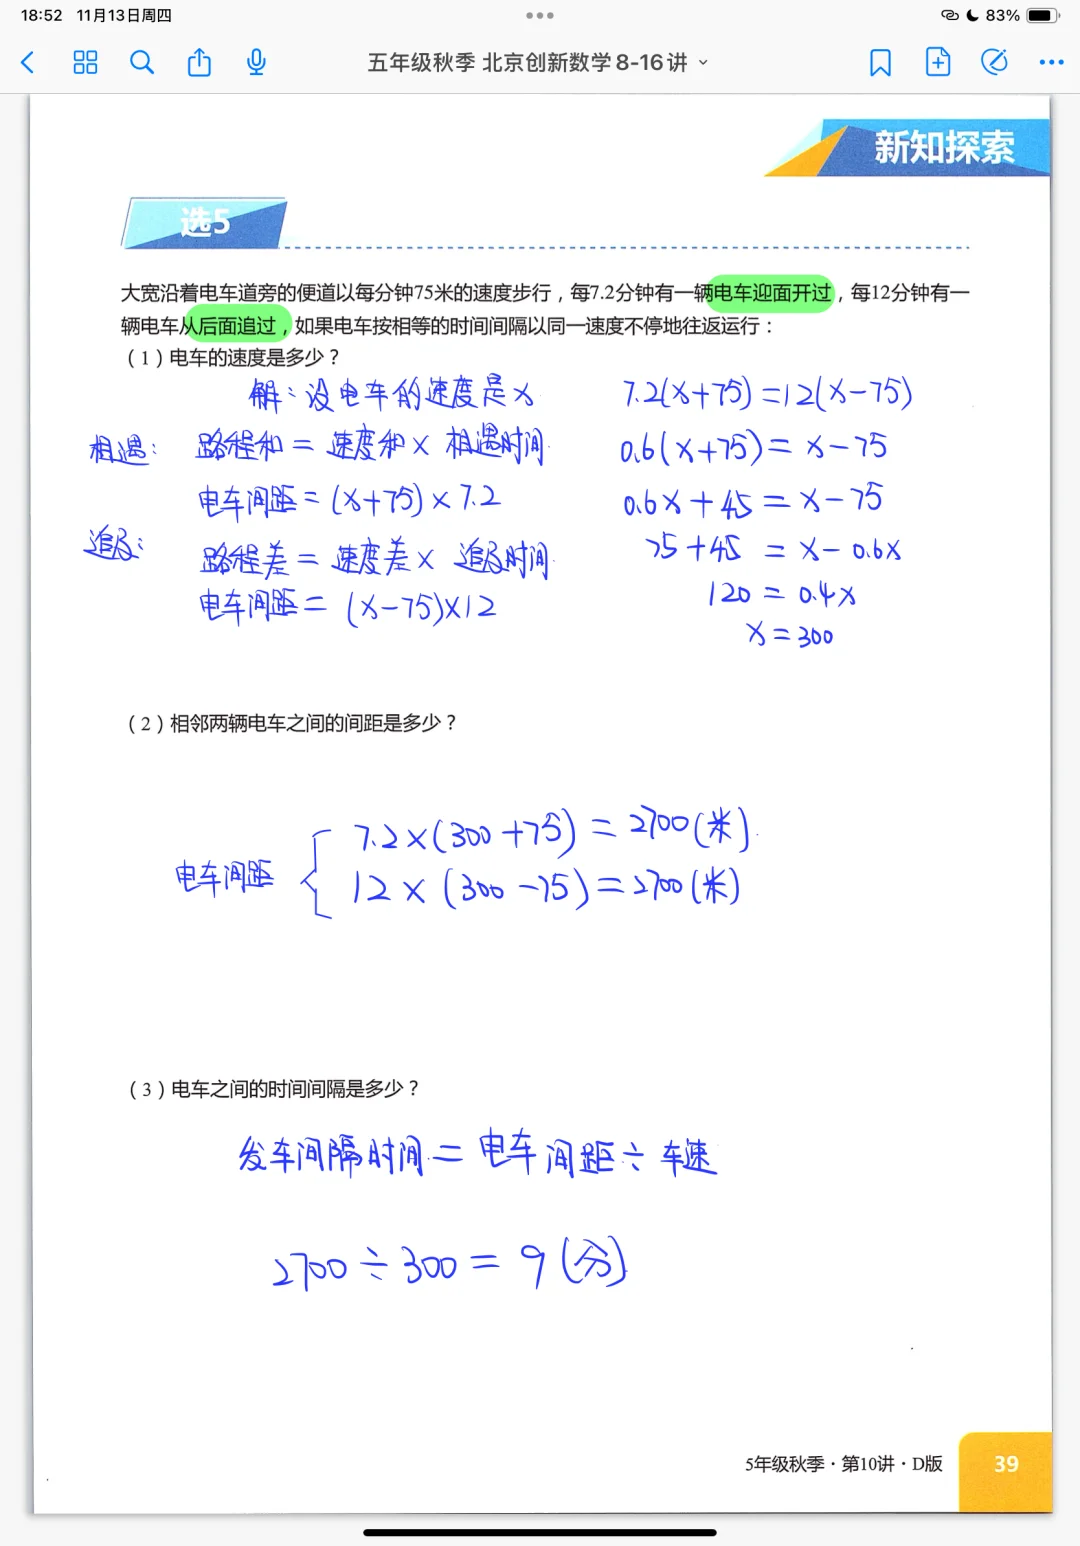 18:52 11月13日周四
83%
五年级秋季 北京创新数学 8-16 讲
新知探索
选5
大宽沿着电车道旁的便道以每分钟75米的速度步行，每7.2分钟有一辆电车迎面开过，每12分钟有一
辆电车从后面追过，如果电车按相等的时间间隔以同一速度不停地往返运行：
（1）电车的速度是多少？
解：设电车的速度是x
相遇：路程和＝速度和×相遇时间
电车间距＝(x+75)×7.2
追及：路程差＝速度差×追及时间
电车间距＝(x-75)×12
7.2(x+75)=12(x-75)
0.6(x+75)=x-75
0.6x+45=x-75
75+45=x-0.6x
120=0.4x
x=300
（2）相邻两辆电车之间的间距是多少？
电车间距
7.2×(300+75)=2700(米)
12×(300-75)=2700(米)
（3）电车之间的时间间隔是多少？
发车间隔时间＝电车间距÷车速
2700÷300=9(分)
5年级秋季·第10讲·D版
39